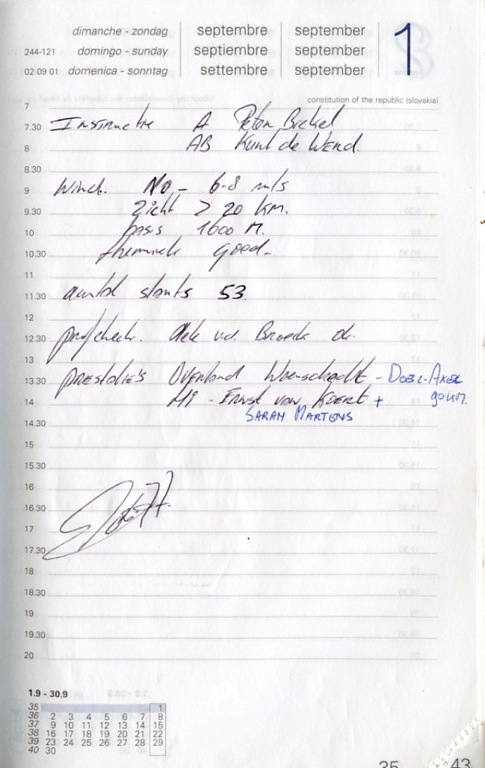 dimanche - zondag septembre september
244-121 domingo - sunday septiembre september
02 09 01 domenica - sonntag settembre september
1
constitution of the republic (slovakia)
7
7.30 Instructie A Peter Bickel
8 AB Kurt de Wend.
8.30
9 Wind. NO - 6-8 m/s
9.30 Zicht > 20 km.
10 basis 1600 M.
10.30 thermiek good.
11
11.30 aantal starts 53
12
12.30
13
13.30 prestaties Overland Woenschecht - DOEL-AXEL
14 - Ernst van + 90 km.
14.30 SARAH MARTENS
15
15.30
16
16.30
17
17.30
18
18.30
19
19.30
20
1.9 - 30.9
35 1
36 2 3 4 5 6 7 8
37 9 10 11 12 13 14 15
38 16 17 18 19 20 21 22
39 23 24 25 26 27 28 29
40 30
35 43